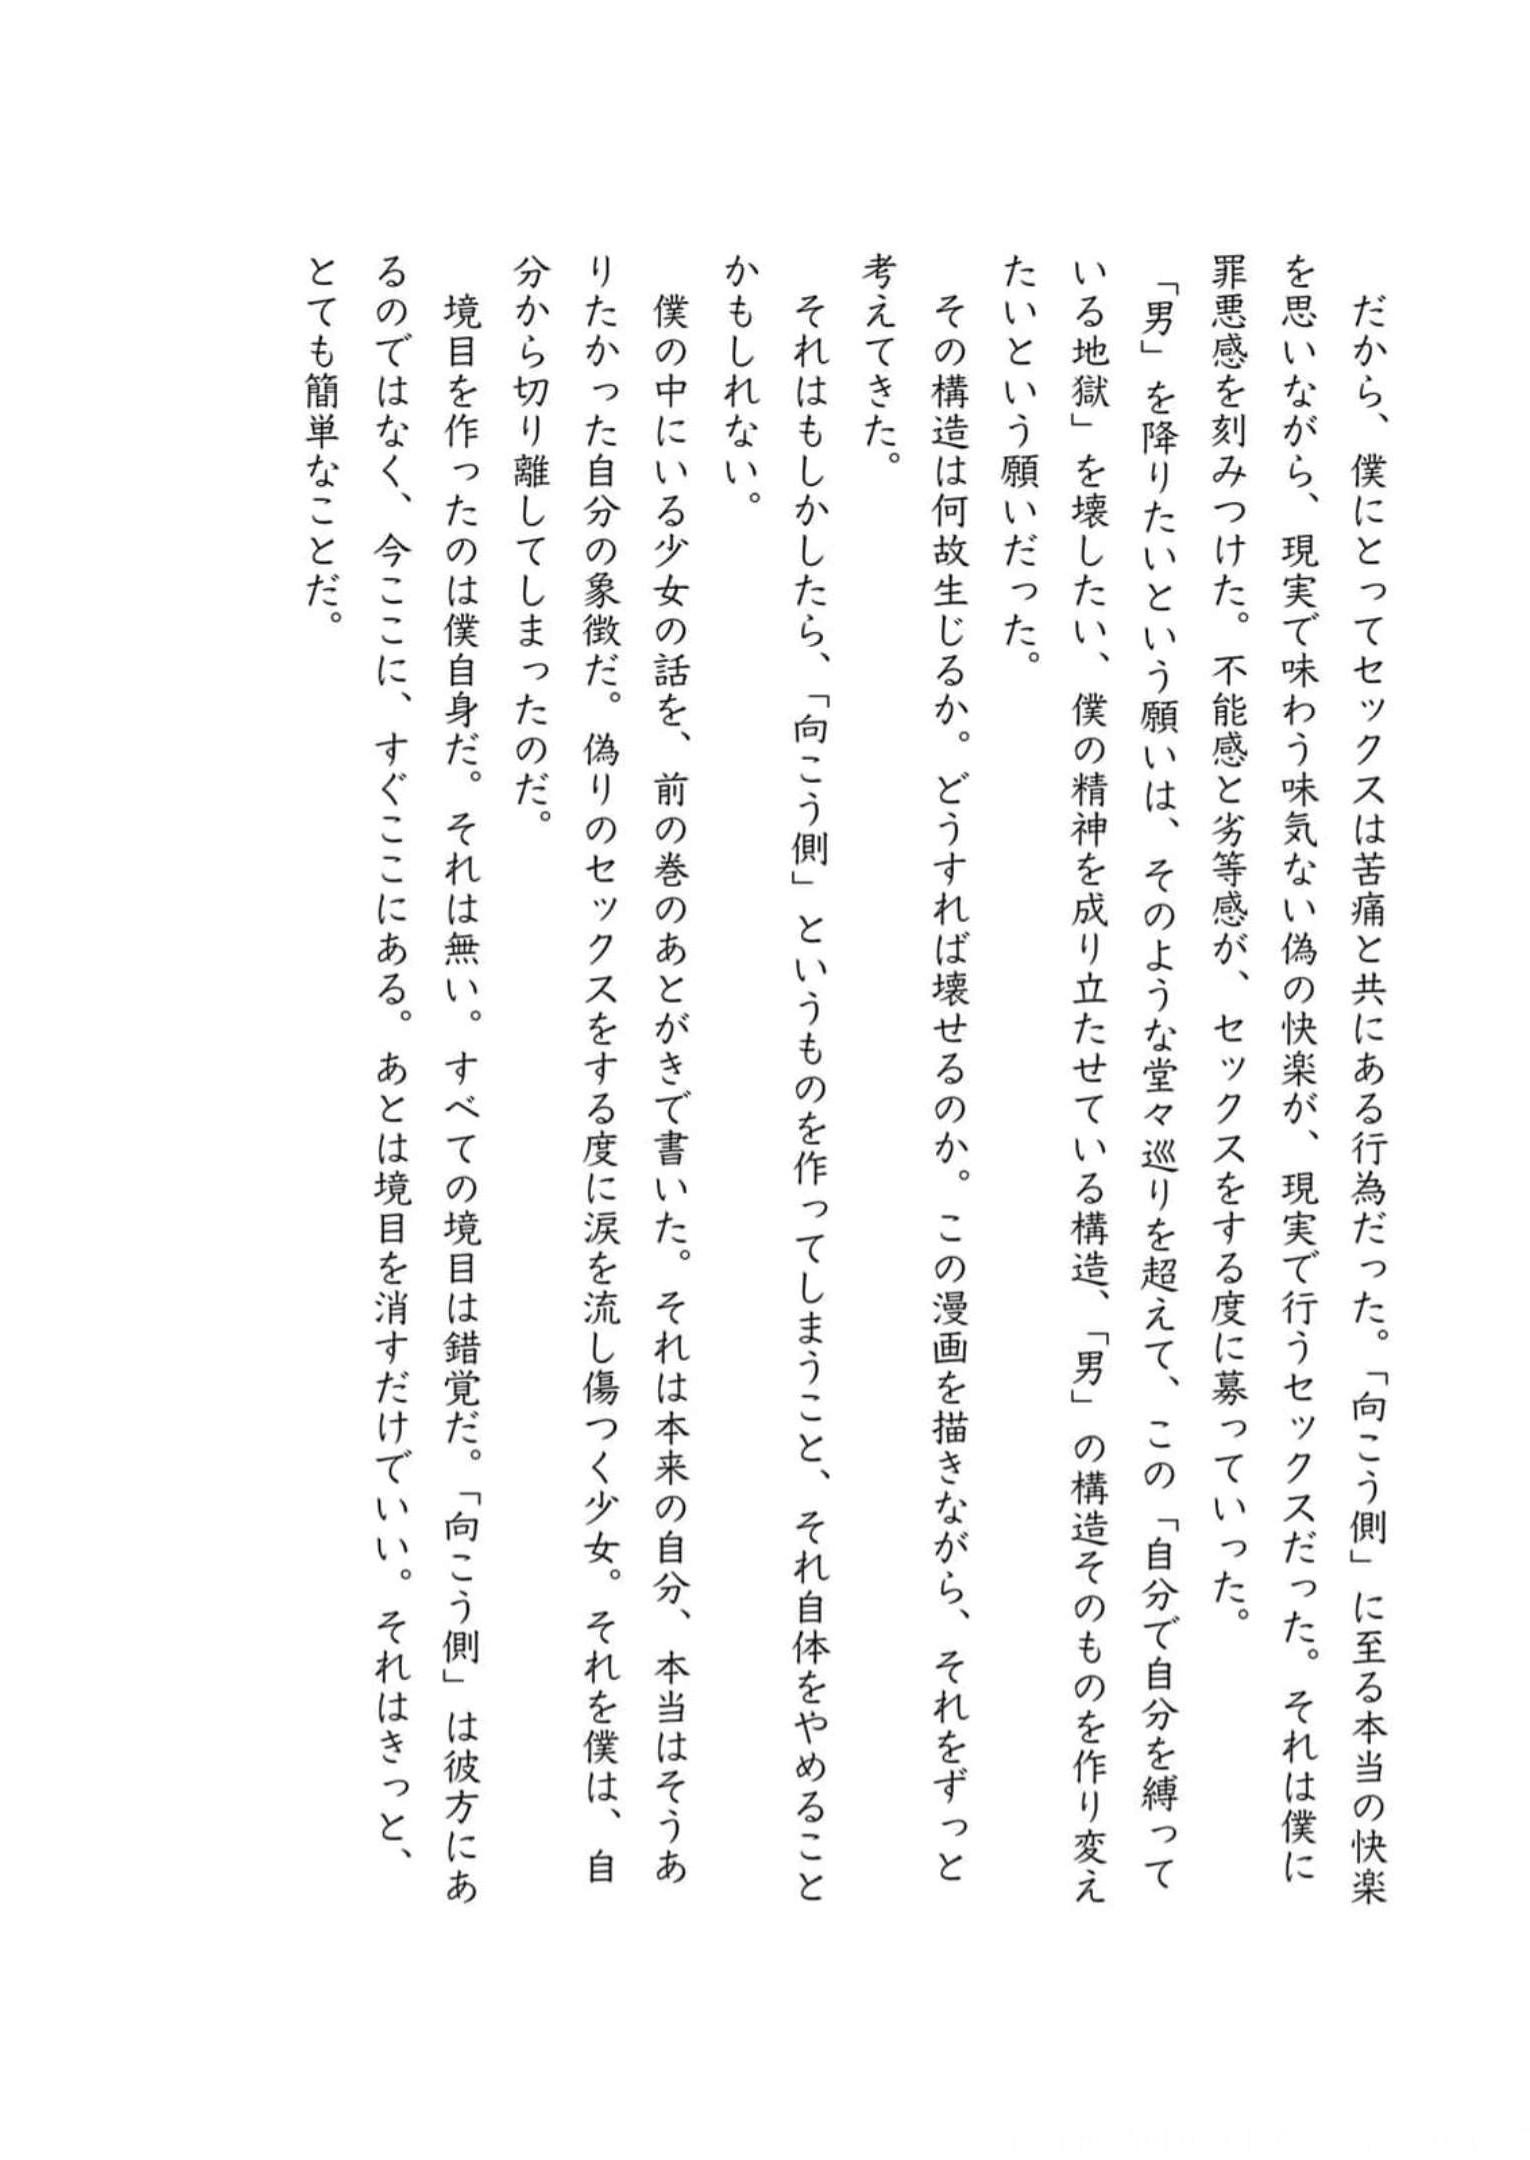 だから、僕にとってセックスは苦痛と共にある行為だった。「向こう側」に至る本当の快楽
を思いながら、現実で味わう味気ない偽の快楽が、現実で行うセックスだった。それは僕に
罪悪感を刻みつけた。不能感と劣等感が、セックスをする度に募っていった。
「男」を降りたいという願いは、そのような堂々巡りを超えて、この「自分で自分を縛って
いる地獄」を壊したい、僕の精神を成り立たせている構造、「男」の構造そのものを作り変え
たいという願いだった。
その構造は何故生じるか。どうすれば壊せるのか。この漫画を描きながら、それをずっと
考えてきた。
それはもしかしたら、「向こう側」というものを作ってしまうこと、それ自体をやめること
かもしれない。
僕の中にいる少女の話を、前の巻のあとがきで書いた。それは本来の自分、本当はそうあ
りたかった自分の象徴だ。偽りのセックスをする度に涙を流し傷つく少女。それを僕は、自
分から切り離してしまったのだ。
境目を作ったのは僕自身だ。それは無い。すべての境目は錯覚だ。「向こう側」は彼方にあ
るのではなく、今ここに、すぐここにある。あとは境目を消すだけでいい。それはきっと、
とても簡単なことだ。